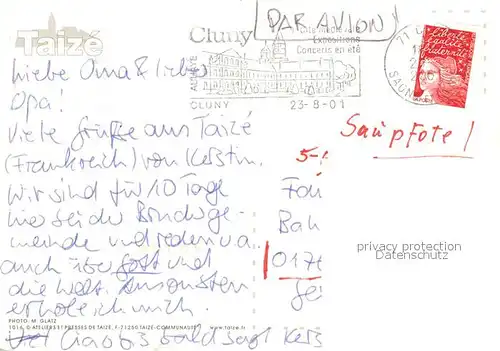 Taizé
Liebe Oma & lieber
Opa!
Viele Grüße aus Taizé
(Frankreich) von Kerstin.
Wir sind für 10 Tage
hier bei der Brüderge-
meinde und reden u.a.
auch über Gott und
die Welt. Ansonsten
erhole ich mich.
Ciao bis bald sagt Kers
PHOTO: M. GLATZ
1016 © ATELIERS ET PRESSES DE TAIZÉ, F-71250 TAIZÉ-COMMUNAUTÉ www.taize.fr
PAR AVION
Cluny
Cité médiévale
Expositions
Concerts en été
ABBAYE
CLUNY
23-8-01
71
SAÔN
Liberté
égalité
fraternité
LA POSTE
Saupfote!
5-
Bah
017
privacy protection
Datenschutz